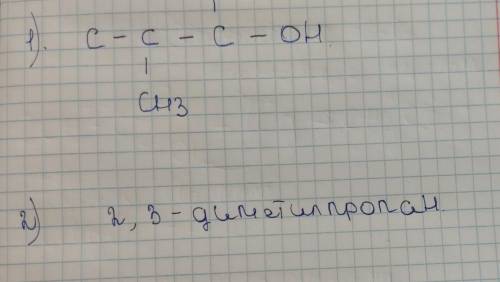 1). C - C - C - OH
CH3
2) 2, 3 - диметилпропан